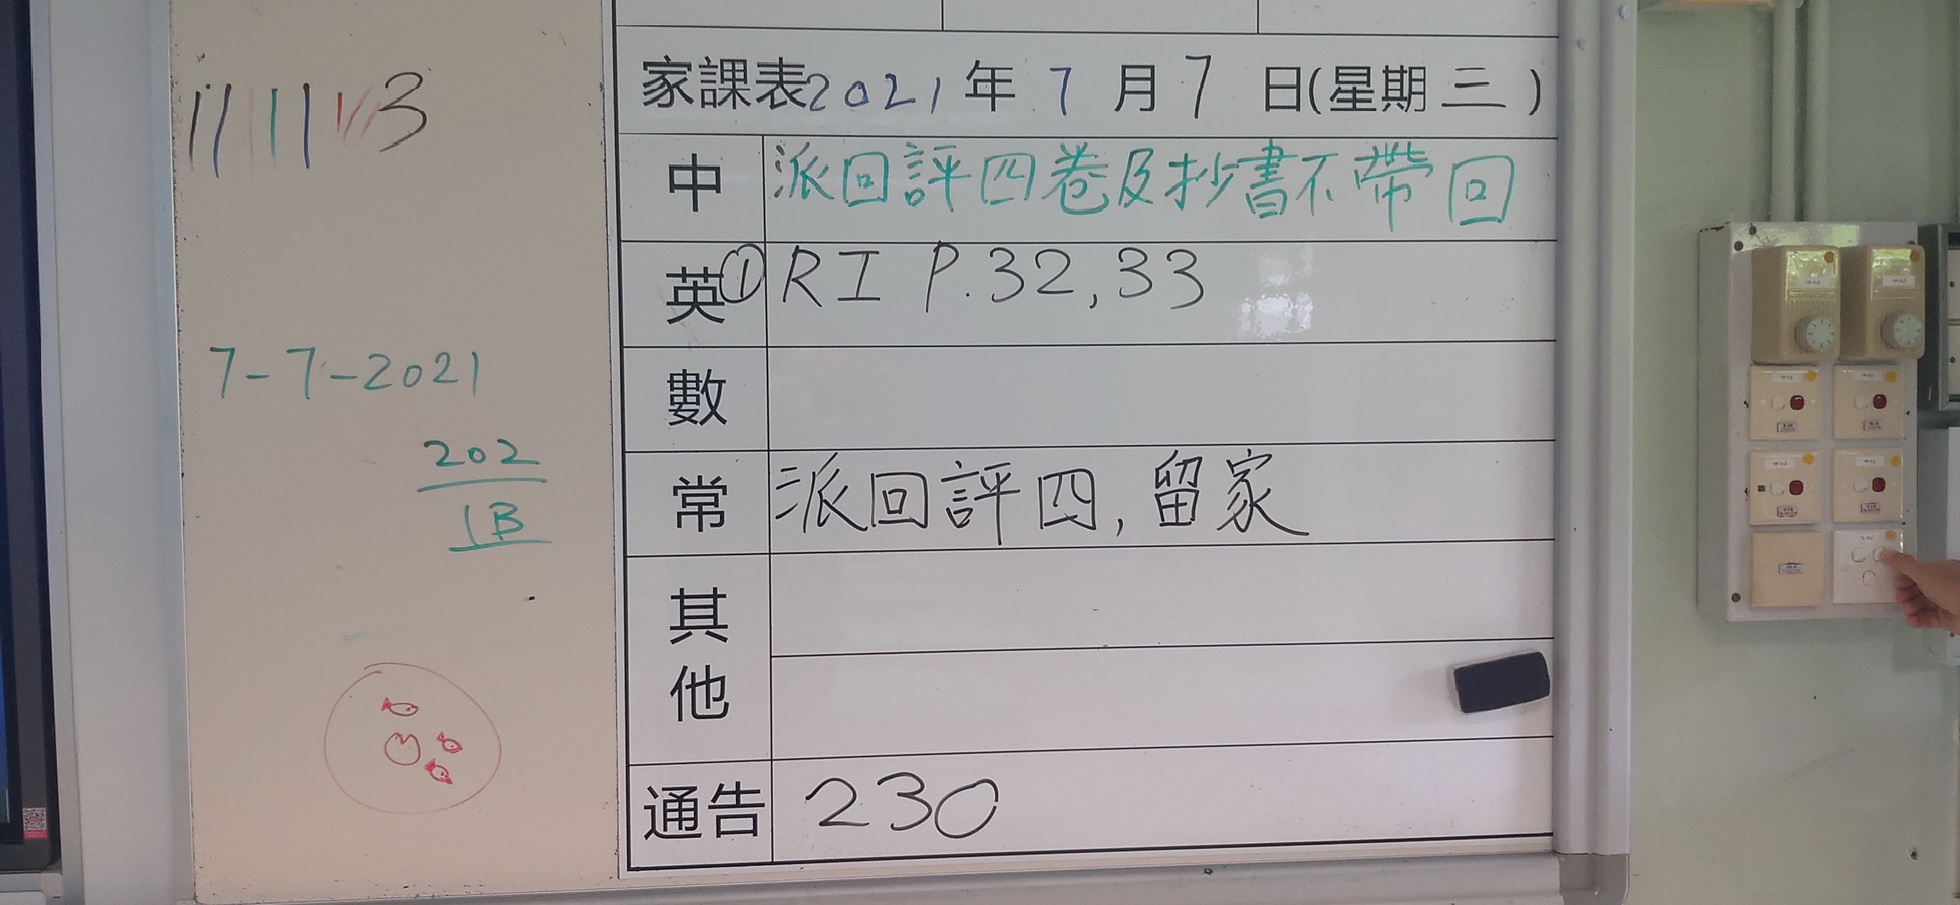 3
7-7-2021
202
1B
家課表2021年7月7日(星期三)
中 派回評四卷及抄書不帶回
英 ① RI P.32,33
數
常 派回評四,留家
其他
通告 230